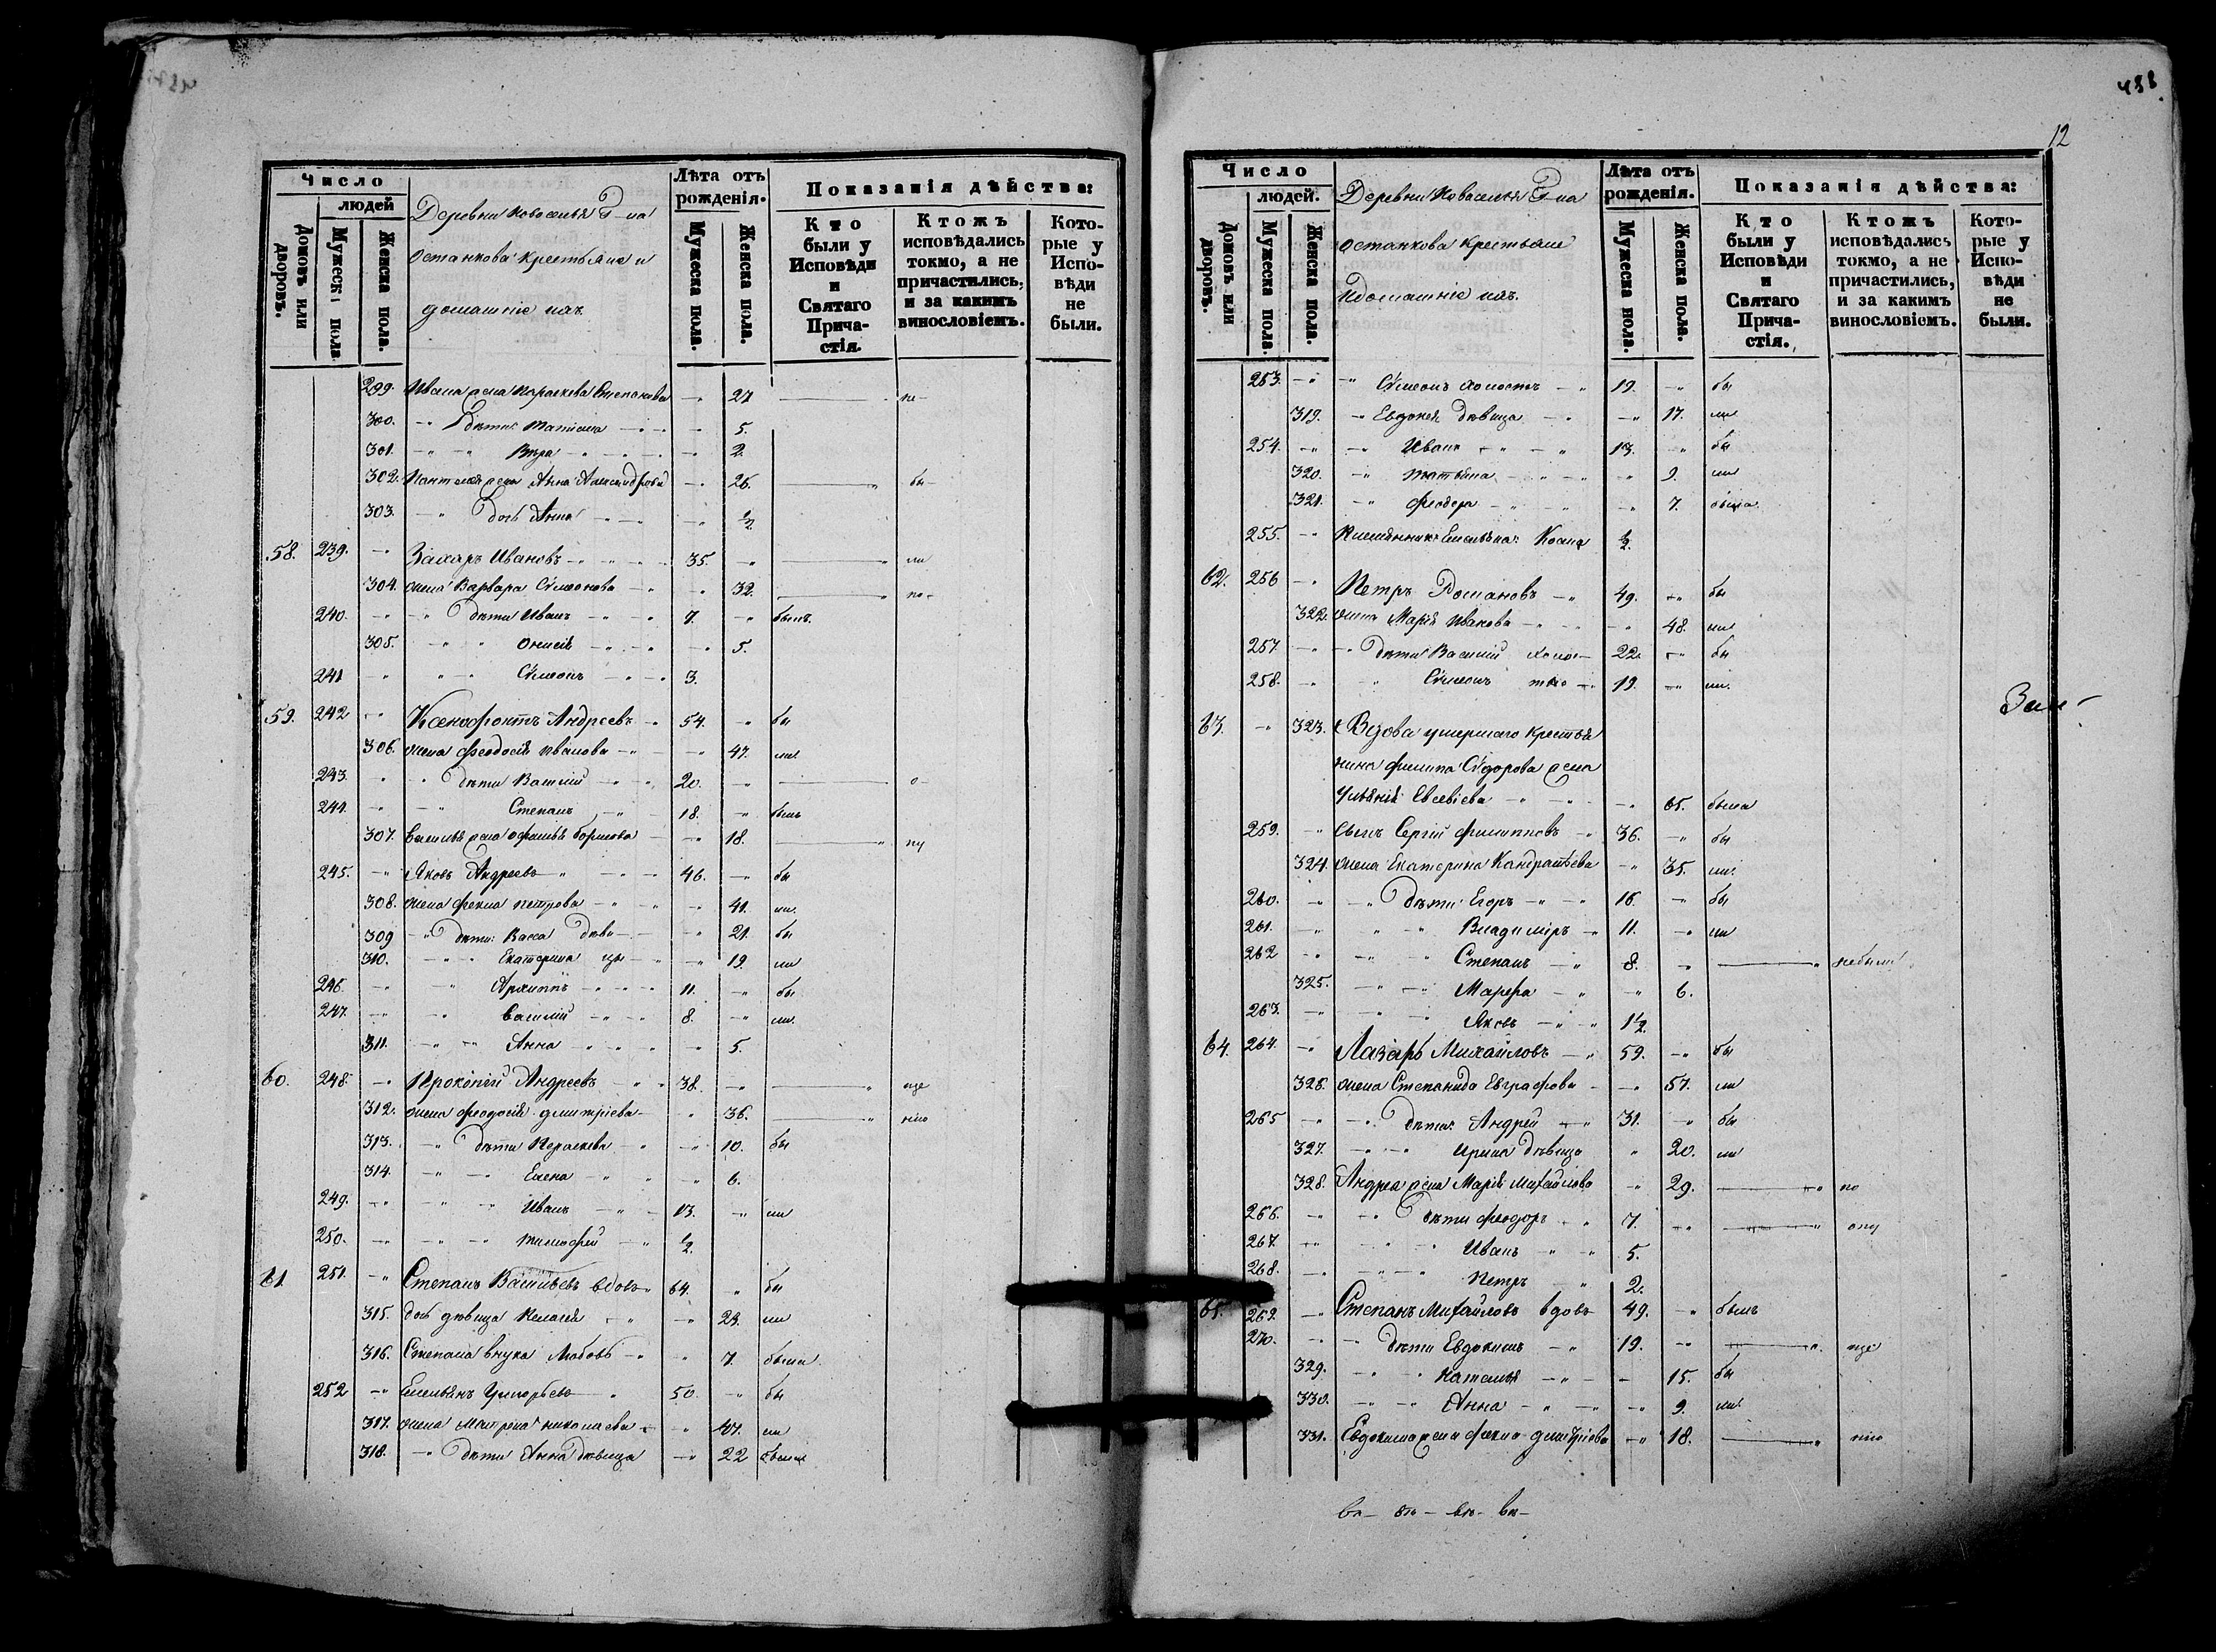 Число
людей
Домовъ или дворовъ.
Мужеска пола.
Женска пола.
Деревни Новоселья Г-на
Останкова крестьяне и
домашніе ихъ
Лѣта отъ рожденія.
Мужеска пола.
Женска пола.
Показанія дѣйства:
Кто были у Исповѣди и Святаго Причастія.
Ктожъ исповѣдались токмо, а не причастились, и за какимъ винословіемъ.
Которые у Исповѣди не были.
299. Ивана жена Параскева Степанова 27 не-
300. дѣти: Татіана 5.
301. Вѣра 2.
302. жена Анна Александрова 26. бы-
303. дочь Анна ½
58. 239. Захаръ Ивановъ 35. ли
304. жена Варвара Сѵмеонова 32. по-
240. дѣти Иванъ 7. былъ.
305. 5.
241 Сѵмеонъ 3.
59. 242 Ксенофонтъ Андреевъ 54. бы
306. жена Феодосія Иванова 47. ли.
243. дѣти Василій 20. о-
244. Степанъ 18. былъ
307. Василья жена Офимья Борисова 18. пу
245. Яковъ Андреевъ 46. бы
308. жена Фекла Петрова 41. ли.
309 дѣти: Васса дѣви- 21. бы
310. Екатерина цы 19. ли
246. Архиппъ 11. бы
247. Василій 8. ли.
311. Анна 5.
60. 248. Прокопій Андреевъ 38. ще
312. жена Феодосія Дмитріева 36. ні
313. дѣти Параскева 10. бы
314. Елена 6.
249. Иванъ 13. ли
250. Тимофей ½
61 251. Степанъ Васильевъ вдовъ 64. бы
315. дочь дѣвица Пелагея 23. ли
316. Степана внука Любовь 7. была.
252 Емельянъ Григорьевъ 50. бы
317. жена Матрена Николаева 47. ли
318. дѣти Анна дѣвица 22 была
438
12
Число
людей.
Домовъ или дворовъ.
Мужеска пола.
Женска пола.
Деревни Новоселья Г-на
Останкова крестьяне
и домашніе ихъ.
Лѣта отъ рожденія.
Мужеска пола.
Женска пола.
Показанія дѣйства:
Кто были у Исповѣди и Святаго Причастія.
Ктожъ исповѣдались токмо, а не причастились, и за какимъ винословіемъ.
Которые у Исповѣди не были.
253. Сѵмеонъ холостъ 19. бы
319. Евдокія дѣвица 17. ли
254. Иванъ 13. бы
320. Татьяна 9. ли
321. Феодора 7. была
255. Козма ½
62. 256 Петръ Романовъ 49. бы
322. жена Марія Иванова 48. ли
257 дѣти Василій холо- 22. бы
258. Сѵмеонъ 19. ли.
63. 323. Вдова умершаго крестья
нина Филипа Сѵдорова жена
Уліянія Евсевіева 65. была
259. сынъ Сергій Филипповъ 36. бы
324. жена Екатерина Кандратьева 35. ли.
260. дѣти: Егоръ 16. бы
261. Владиміръ 11. ли
262 Степанъ 8. небыли
325. Марфа 6.
263. Яковъ 1½.
64. 264. Лазарь Михайловъ 59. бы
326. жена Степанида Евграфова 57. ли
265 дѣти: Андрей 31. бы
327. Ирина дѣвица 20. ли
328. Андрея жена Марія Михайлова 29. по
266. дѣти Феодоръ 7. опу
267. Иванъ 5.
268. Петръ 2.
65. 269. Степанъ Михайловъ вдовъ 49. былъ
270. дѣти Евдокимъ 19. ще
329. Наталья 15. бы
330. Анна 9. ли
331. Евдокима жена Фекла Дмитріева 18. нію